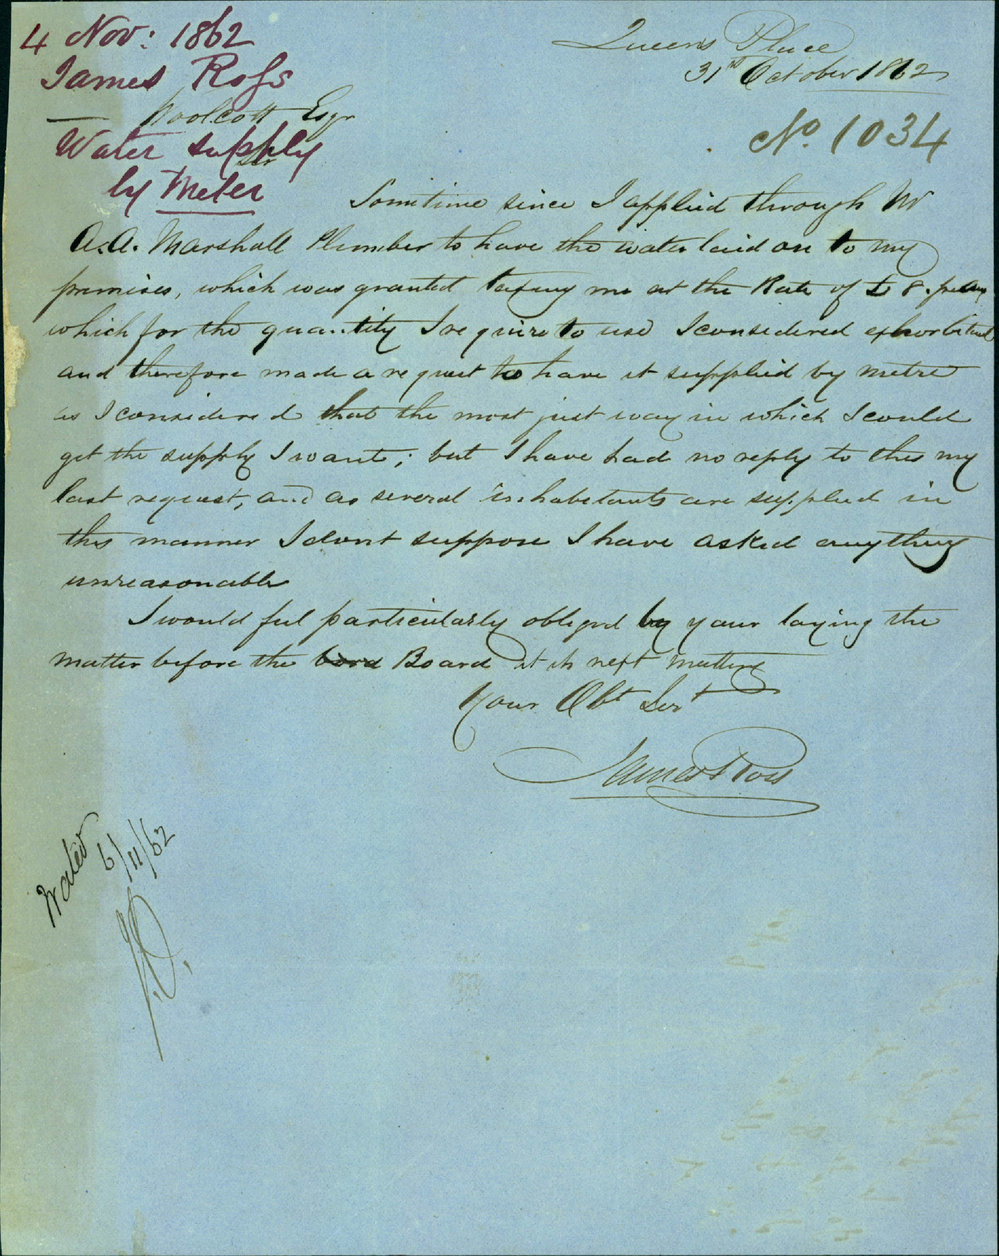 4 Nov: 1862
James Ross
Water supply
by Meter
Queens Place
31st October 1862
No. 1034
Woolcott Esqr
Sir
Sometime since I applied through Mr
A. A. Marshall Plumber to have the water laid on to my
premises, which was granted taxing me at the Rate of £8. per
which for the quantity I require to use I considered exhorbitant
and therefore made a request to have it supplied by metre
as I considered that the most just way in which I could
get the supply I want; but I have had no reply to this my
last request, and as several inhabetants are supplied in
this manner I dont suppose I have asked anything
unreasonable
I would feel particularly obliged by your laying the
matter before the bord Board at its next meeting
Your Obt Servt
James Ross
6/11/62